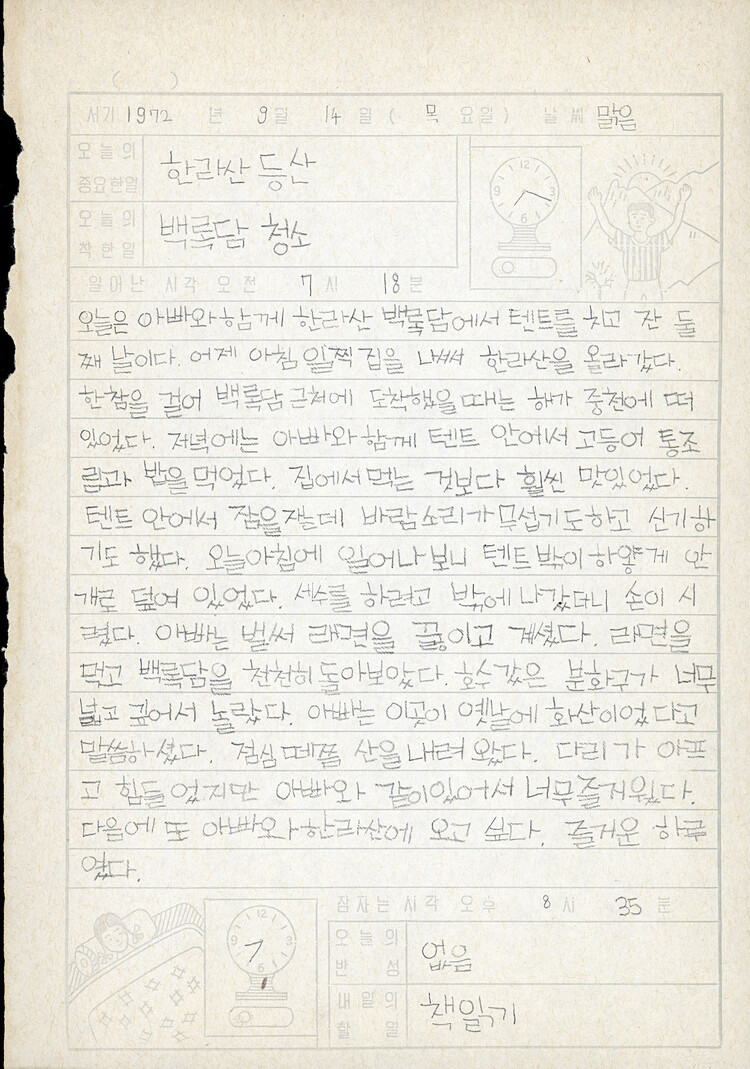 ( )
서기 1972 년 9월 14일 ( 목 요일) 날씨 맑음
오늘의 중요한일 한라산 등산
오늘의 착한일 백록담 청소
일어난 시각 오전 7시 18분
오늘은 아빠와 함께 한라산 백록담에서 텐트를 치고 잔 둘
째 날이다. 어제 아침 일찍 집을 나써 한라산을 올라갔다.
한참을 걸어 백록담 근처에 도착했을 때는 해가 중천에 떠
있었다. 저녁에는 아빠와 함께 텐트 안에서 고등어 통조
림과 밥을 먹었다. 집에서 먹는 것보다 훨씬 맛있었다.
텐트 안에서 잠을 자는데 바람소리가 무섭기도하고 신기하
기도 했다. 오늘아침에 일어나 보니 텐트 밖이 하얗게 안
개로 덮여 있었다. 세수를 하려고 밖에 나갔더니 손이 시
렸다. 아빠는 벌써 라면을 끓이고 계셨다. 라면을
먹고 백록담을 천천히 돌아보았다. 호수같은 분화구가 너무
넓고 깊어서 놀랐다. 아빠는 이곳이 옛날에 화산이었다고
말씀하셨다. 점심 때쯤 산을 내려 왔다. 다리가 아프
고 힘들었지만 아빠와 같이있어서 너무즐거웠다.
다음에 또 아빠와 한라산에 오고 싶다. 즐거운 하루
였다.
잠자는 시각 오후 8시 35분
오늘의 반성 없음
내일의 할일 책읽기